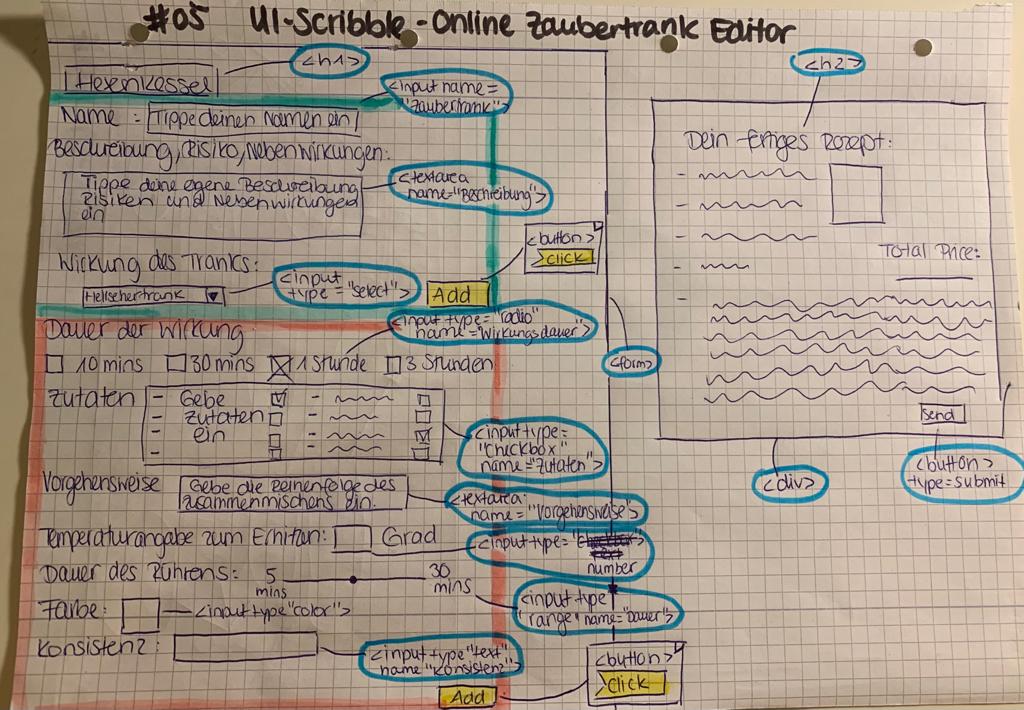 #05 UI-Scribble - Online Zaubertrank Editor
<h1>
Hexenkessel
<input name=
"Zaubertrank">
Name : Tippe deinen Namen ein
Beschreibung, Risiko, Nebenwirkungen:
Tippe deine eigene Beschreibung
Risiken und Nebenwirkungen
ein
<textarea
name="Beschreibung">
<button>
click
Wirkung des Tranks:
Hellsehertrank
<input
type = "select">
Add
<input type = "radio"
name = Wirkungsdauer">
Dauer der Wirkung
10 mins 30 mins 1 Stunde 3 Stunden
<form>
Zutaten
- Gebe -
- Zutaten -
- ein -
- -
<input type=
"Checkbox"
name="Zutaten">
Vorgehensweise
Gebe die Reihenfolge des
zusammenmischens ein.
<textarea:
name = "Vorgehensweise">
Temperaturangabe zum Erhitzen: Grad
<input type= "
number
Dauer des Rührens: 5 mins 30 mins
<input type
"range" name="Dauer">
Farbe: <input type "color">
Konsistenz:
<input type "text"
name "Konsistenz">
<button>
click
Add
<h2>
Dein fertiges Rezept:
-
-
-
-
-
Total Price:
send
<div>
<button>
type=submit